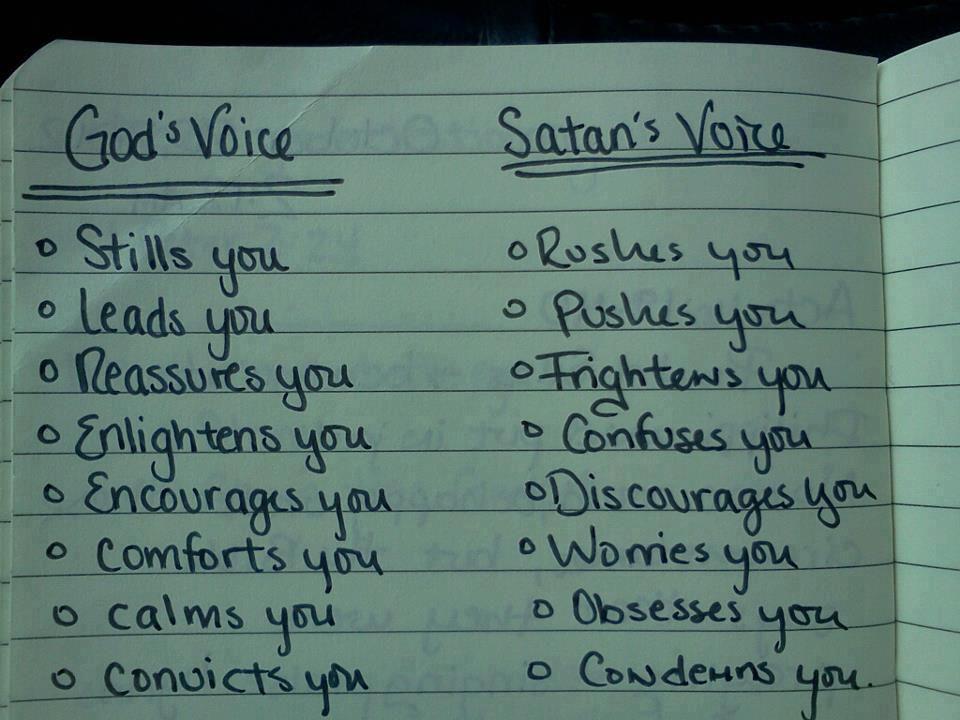 God's Voice
Stills you
Leads you
Reassures you
Enlightens you
Encourages you
Comforts you
calms you
convicts you
Satan's Voice
Rushes you
Pushes you
Frightens you
Confuses you
Discourages you
Worries you
Obsesses you
Condemns you.